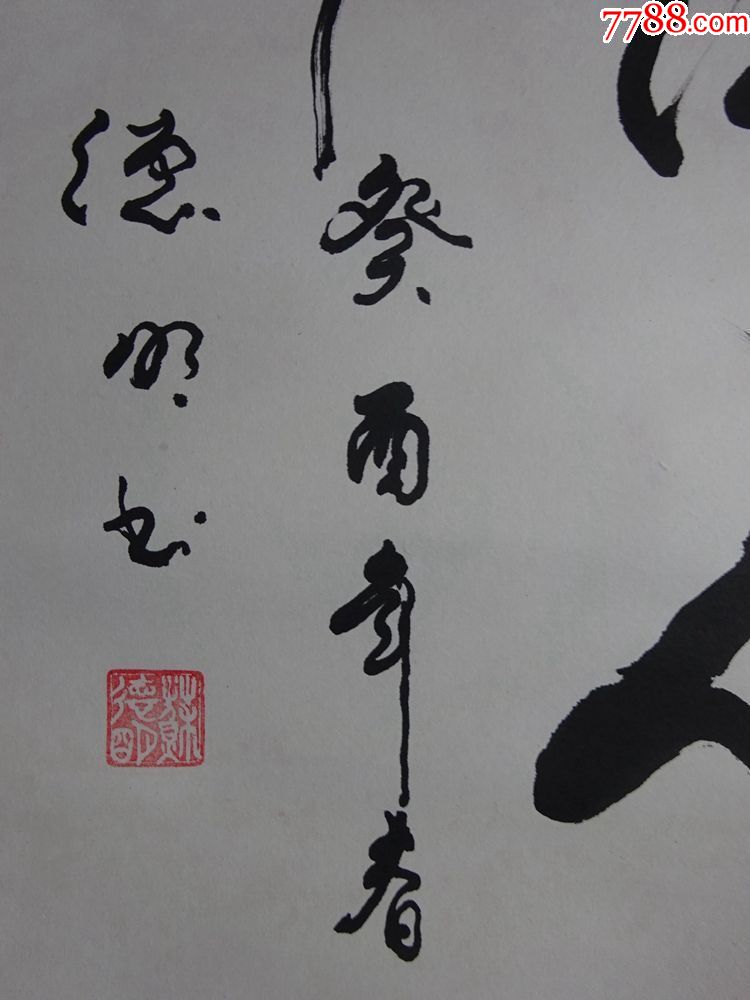 7788.com
癸酉年春
德明书
德明